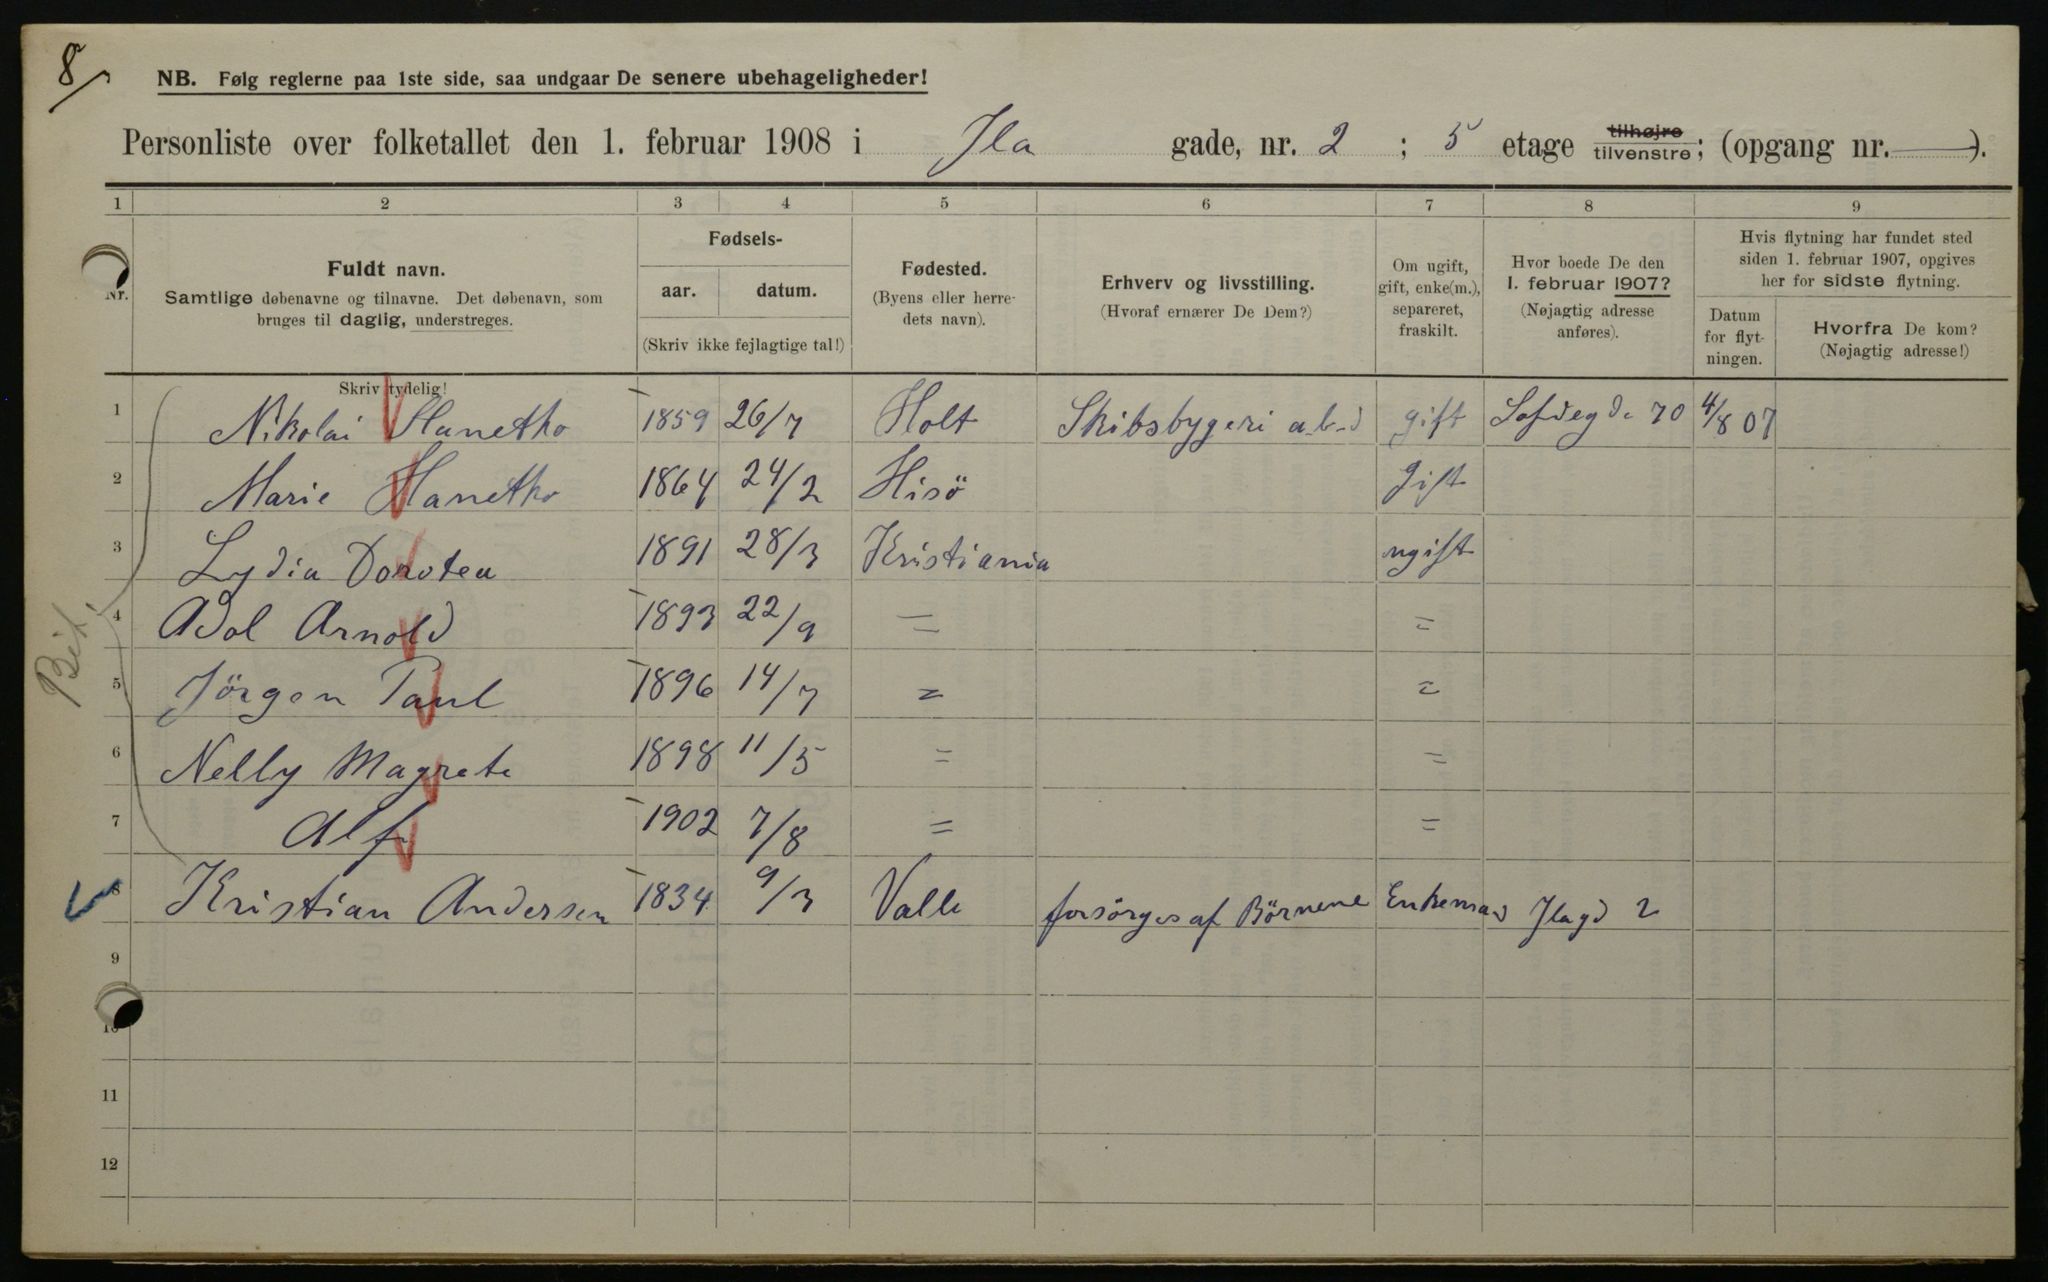 8/
NB. Følg reglerne paa 1ste side, saa undgaar De senere ubehageligheder!
Personliste over folketallet den 1. februar 1908 i Ila gade, nr. 2 ; 5 etage tilhøjre tilvenstre; (opgang nr. — ).
1 2 3 4 5 6 7 8 9
Nr.
Fuldt navn.
Samtlige døbenavne og tilnavne. Det døbenavn, som
bruges til daglig, understreges.
Skriv tydelig!
Fødsels-
aar. datum.
(Skriv ikke fejlagtige tal!)
Fødested.
(Byens eller herre-
dets navn).
Erhverv og livsstilling.
(Hvoraf ernærer De Dem?)
Om ugift,
gift, enke(m.),
separeret,
fraskilt.
Hvor boede De den
1. februar 1907?
(Nøjagtig adresse
anføres).
Hvis flytning har fundet sted
siden 1. februar 1907, opgives
her for sidste flytning.
Datum
for flyt-
ningen.
Hvorfra De kom?
(Nøjagtig adresse!)
1 Nikolai Hanetho 1859 26/7 Holt Skibsbygeri gift 70 4/8 07
2 Marie Hanetho 1864 24/2 Hisö Gift
3 Lydia Dorotea 1891 28/3 Kristiania ugift
4 Adol Arnold 1893 22/9 = =
5 Jörgen Paul 1896 14/7 = =
6 Nelly Magrete 1898 11/5 = =
7 Alf 1902 7/8 = =
8 Kristian Andersen 1834 9/3 Valle forsörges af Börnene Enkemand Ilagd 2
9
10
11
12